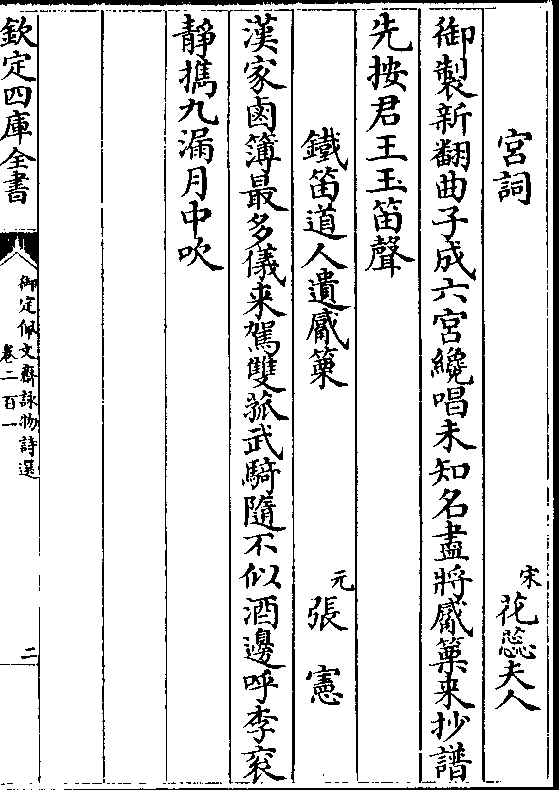 宮詞
宋花蕊夫人
御製新翻曲子成六宮纔唱未知名盡將觱篥来抄譜
先按君王玉笛聲
鐵笛道人遺觱篥
元張憲
漢家鹵簿最多儀来駕雙菰武騎隨不似酒邊呼李衮
静擕九漏月中吹
欽定四庫全書
御定佩文齋詠物詩選
卷二百一
二